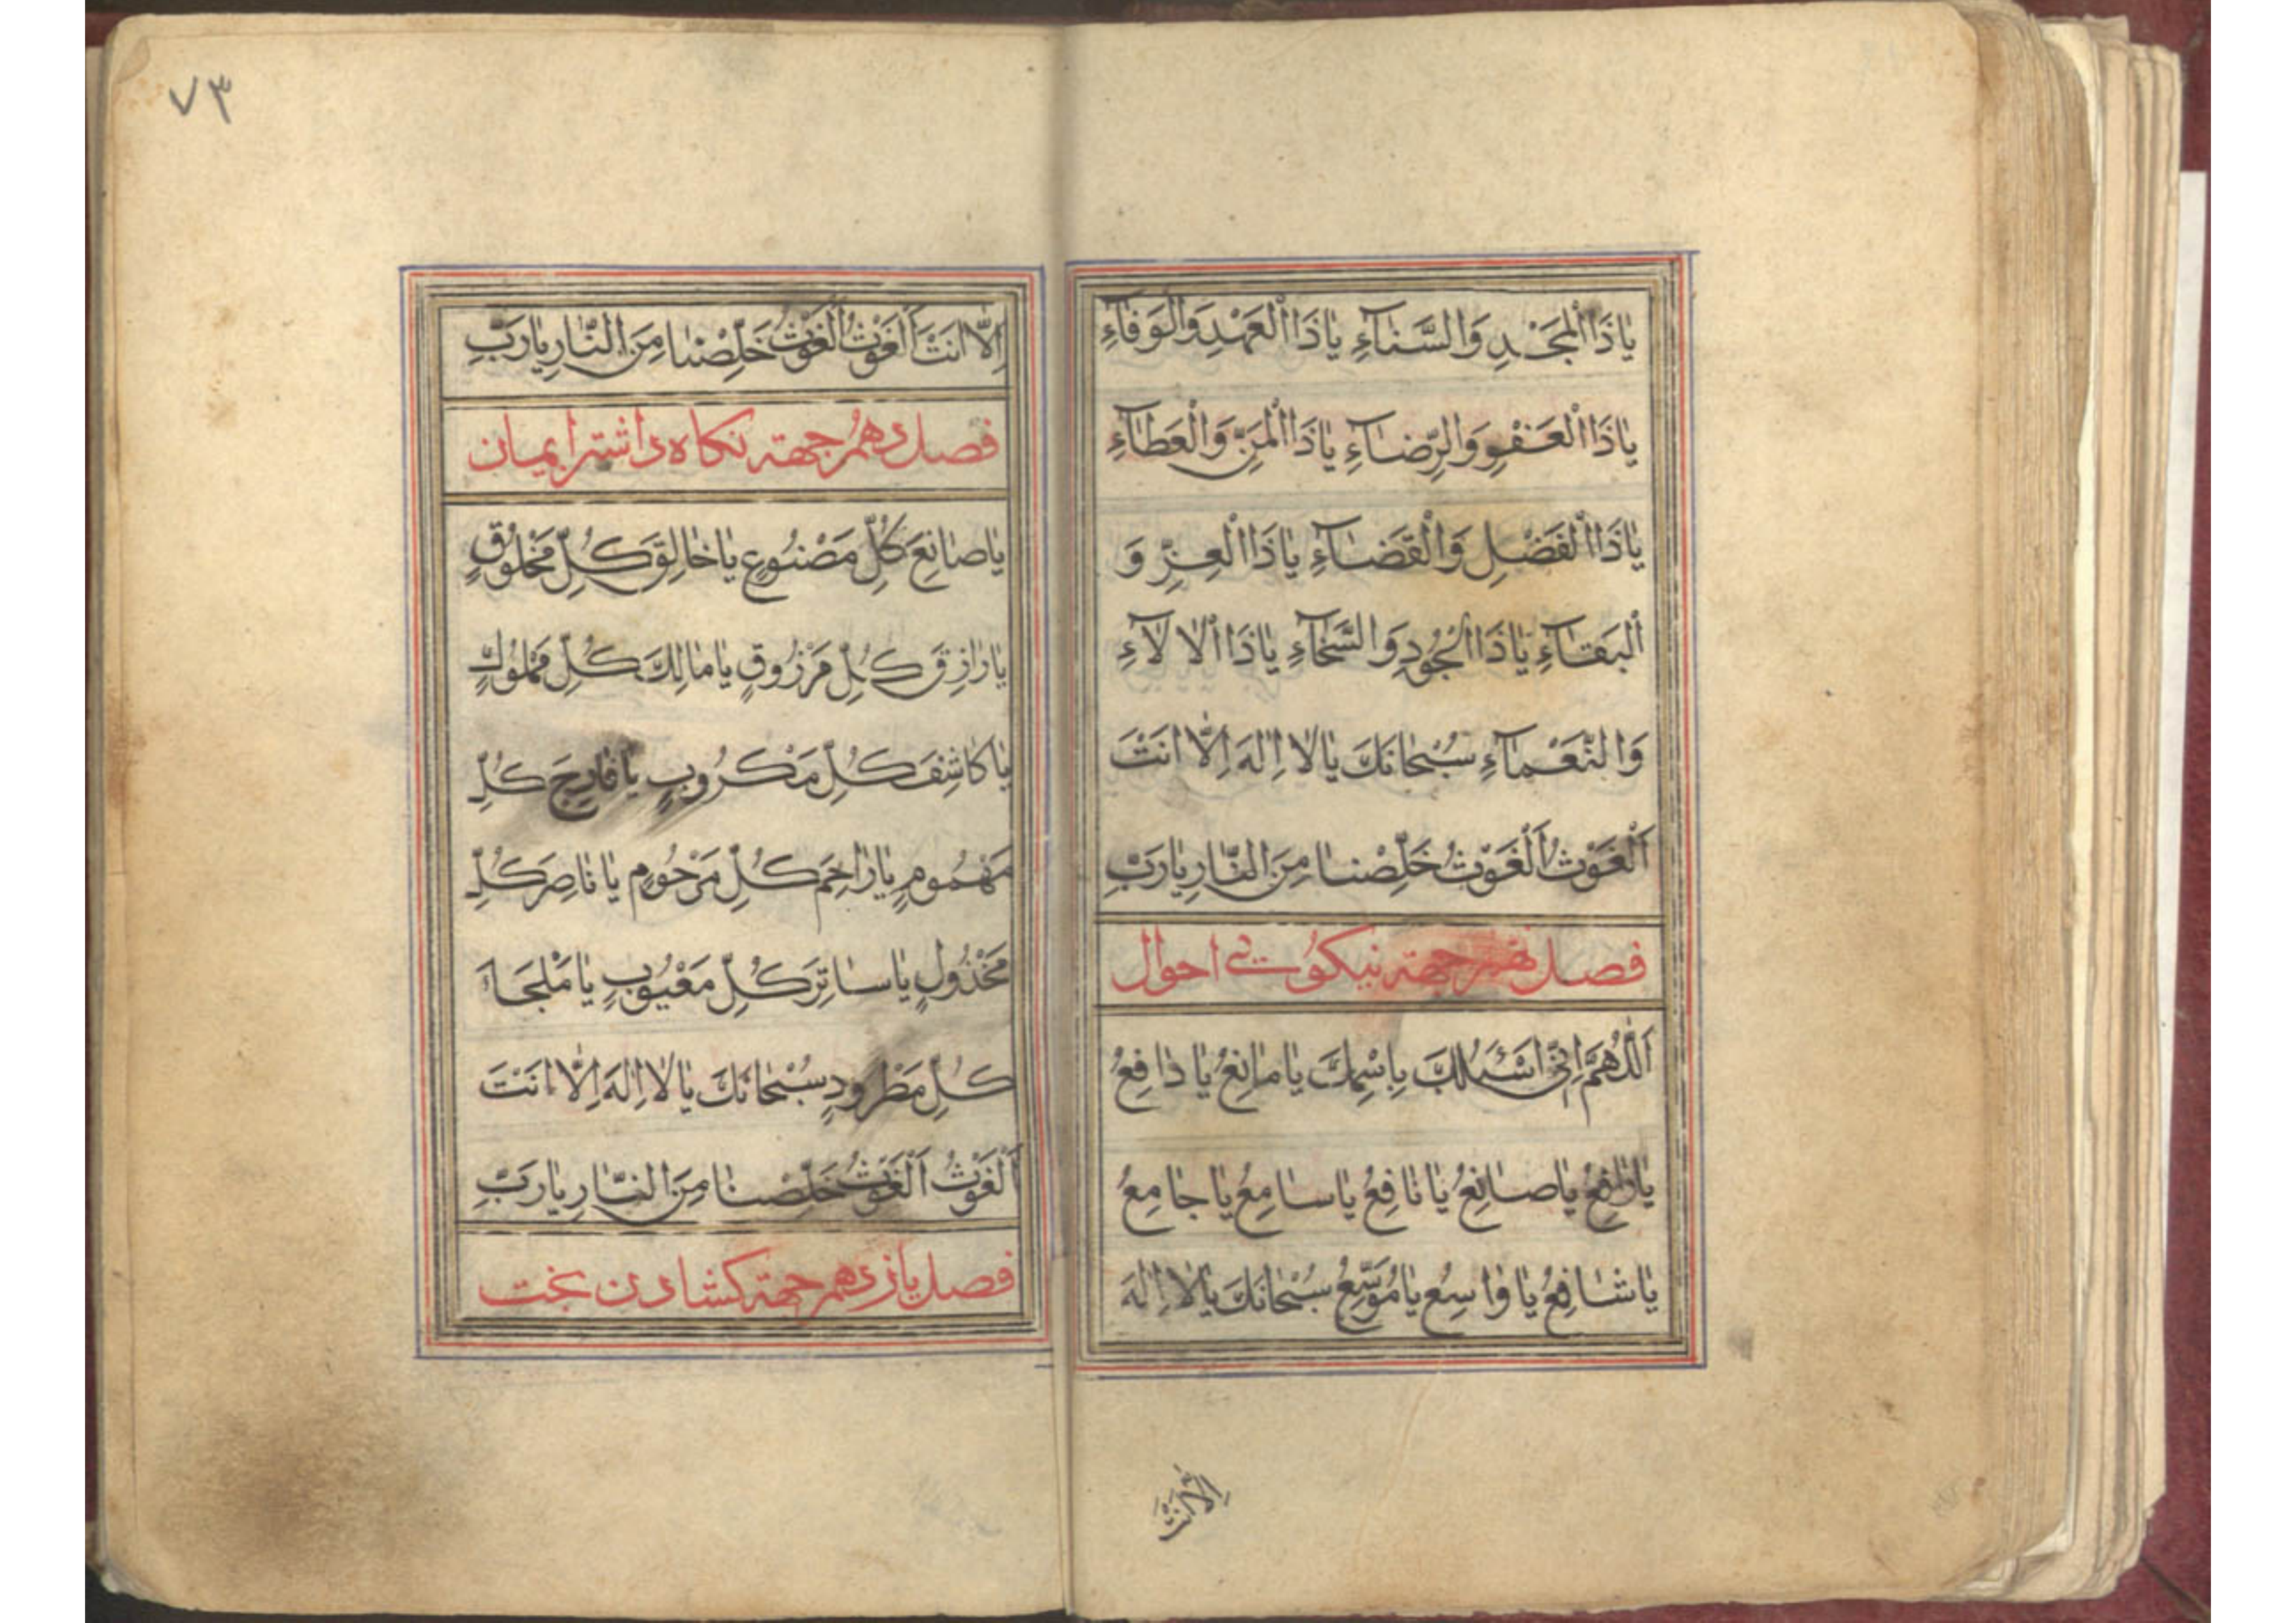 يا ذَا الْمَجْدِ وَالسَّناءِ يا ذَا الْعَهْدِ وَالْوَفاءِ
يا ذَا الْعَفْوِ وَالرِّضاءِ يا ذَا الْمَنِّ وَالْعَطاءِ
يا ذَا الْفَضْلِ وَالْقَضاءِ يا ذَا الْعِزِّ وَ
الْبَقاءِ يا ذَا الْجُودِ وَالسَّخاءِ يا ذَا الْالاءِ
وَالنَّعْماءِ سُبْحانَكَ يا لا اِلهَ اِلّا اَنْتَ
اَلْغَوْثُ اَلْغَوْثُ خَلِّصْنا مِنَ النّارِ يا رَبِّ
فصل نهم جهته نیکوئی احوال
اَللّهُمَّ اِنّی اَسْئَلُكَ بِاسْمِكَ يا مانِعُ يا دافِعُ
يا رافِعُ يا صانِعُ يا نافِعُ يا سامِعُ يا جامِعُ
يا شافِعُ يا واسِعُ يا مُوَسِّعُ سُبْحانَكَ يا لا اِلهَ
٧٣
اِلّا اَنْتَ اَلْغَوْثُ الْغَوْثُ خَلِّصْنا مِنَ النّارِ يا رَبِّ
فصل دهم جهته نکاه داشتن ایمان
يا صانِعَ كُلِّ مَصْنُوعٍ يا خالِقَ كُلِّ مَخْلُوقٍ
يا رازِقَ كُلِّ مَرْزُوقٍ يا مالِكَ كُلِّ مَمْلُوكٍ
يا كاشِفَ كُلِّ مَكْرُوبٍ يا فارِجَ كُلِّ
مَهْمُومٍ يا راحِمَ كُلِّ مَرْحُومٍ يا ناصِرَ كُلِّ
مَخْذُولٍ يا ساتِرَ كُلِّ مَعْيُوبٍ يا مَلْجَاَ
كُلِّ مَطْرُودٍ سُبْحانَكَ يا لا اِلهَ اِلّا اَنْتَ
اَلْغَوْثُ اَلْغَوْثُ خَلِّصْنا مِنَ النّارِ يا رَبِّ
فصل یازدهم جهته کشادن بخت